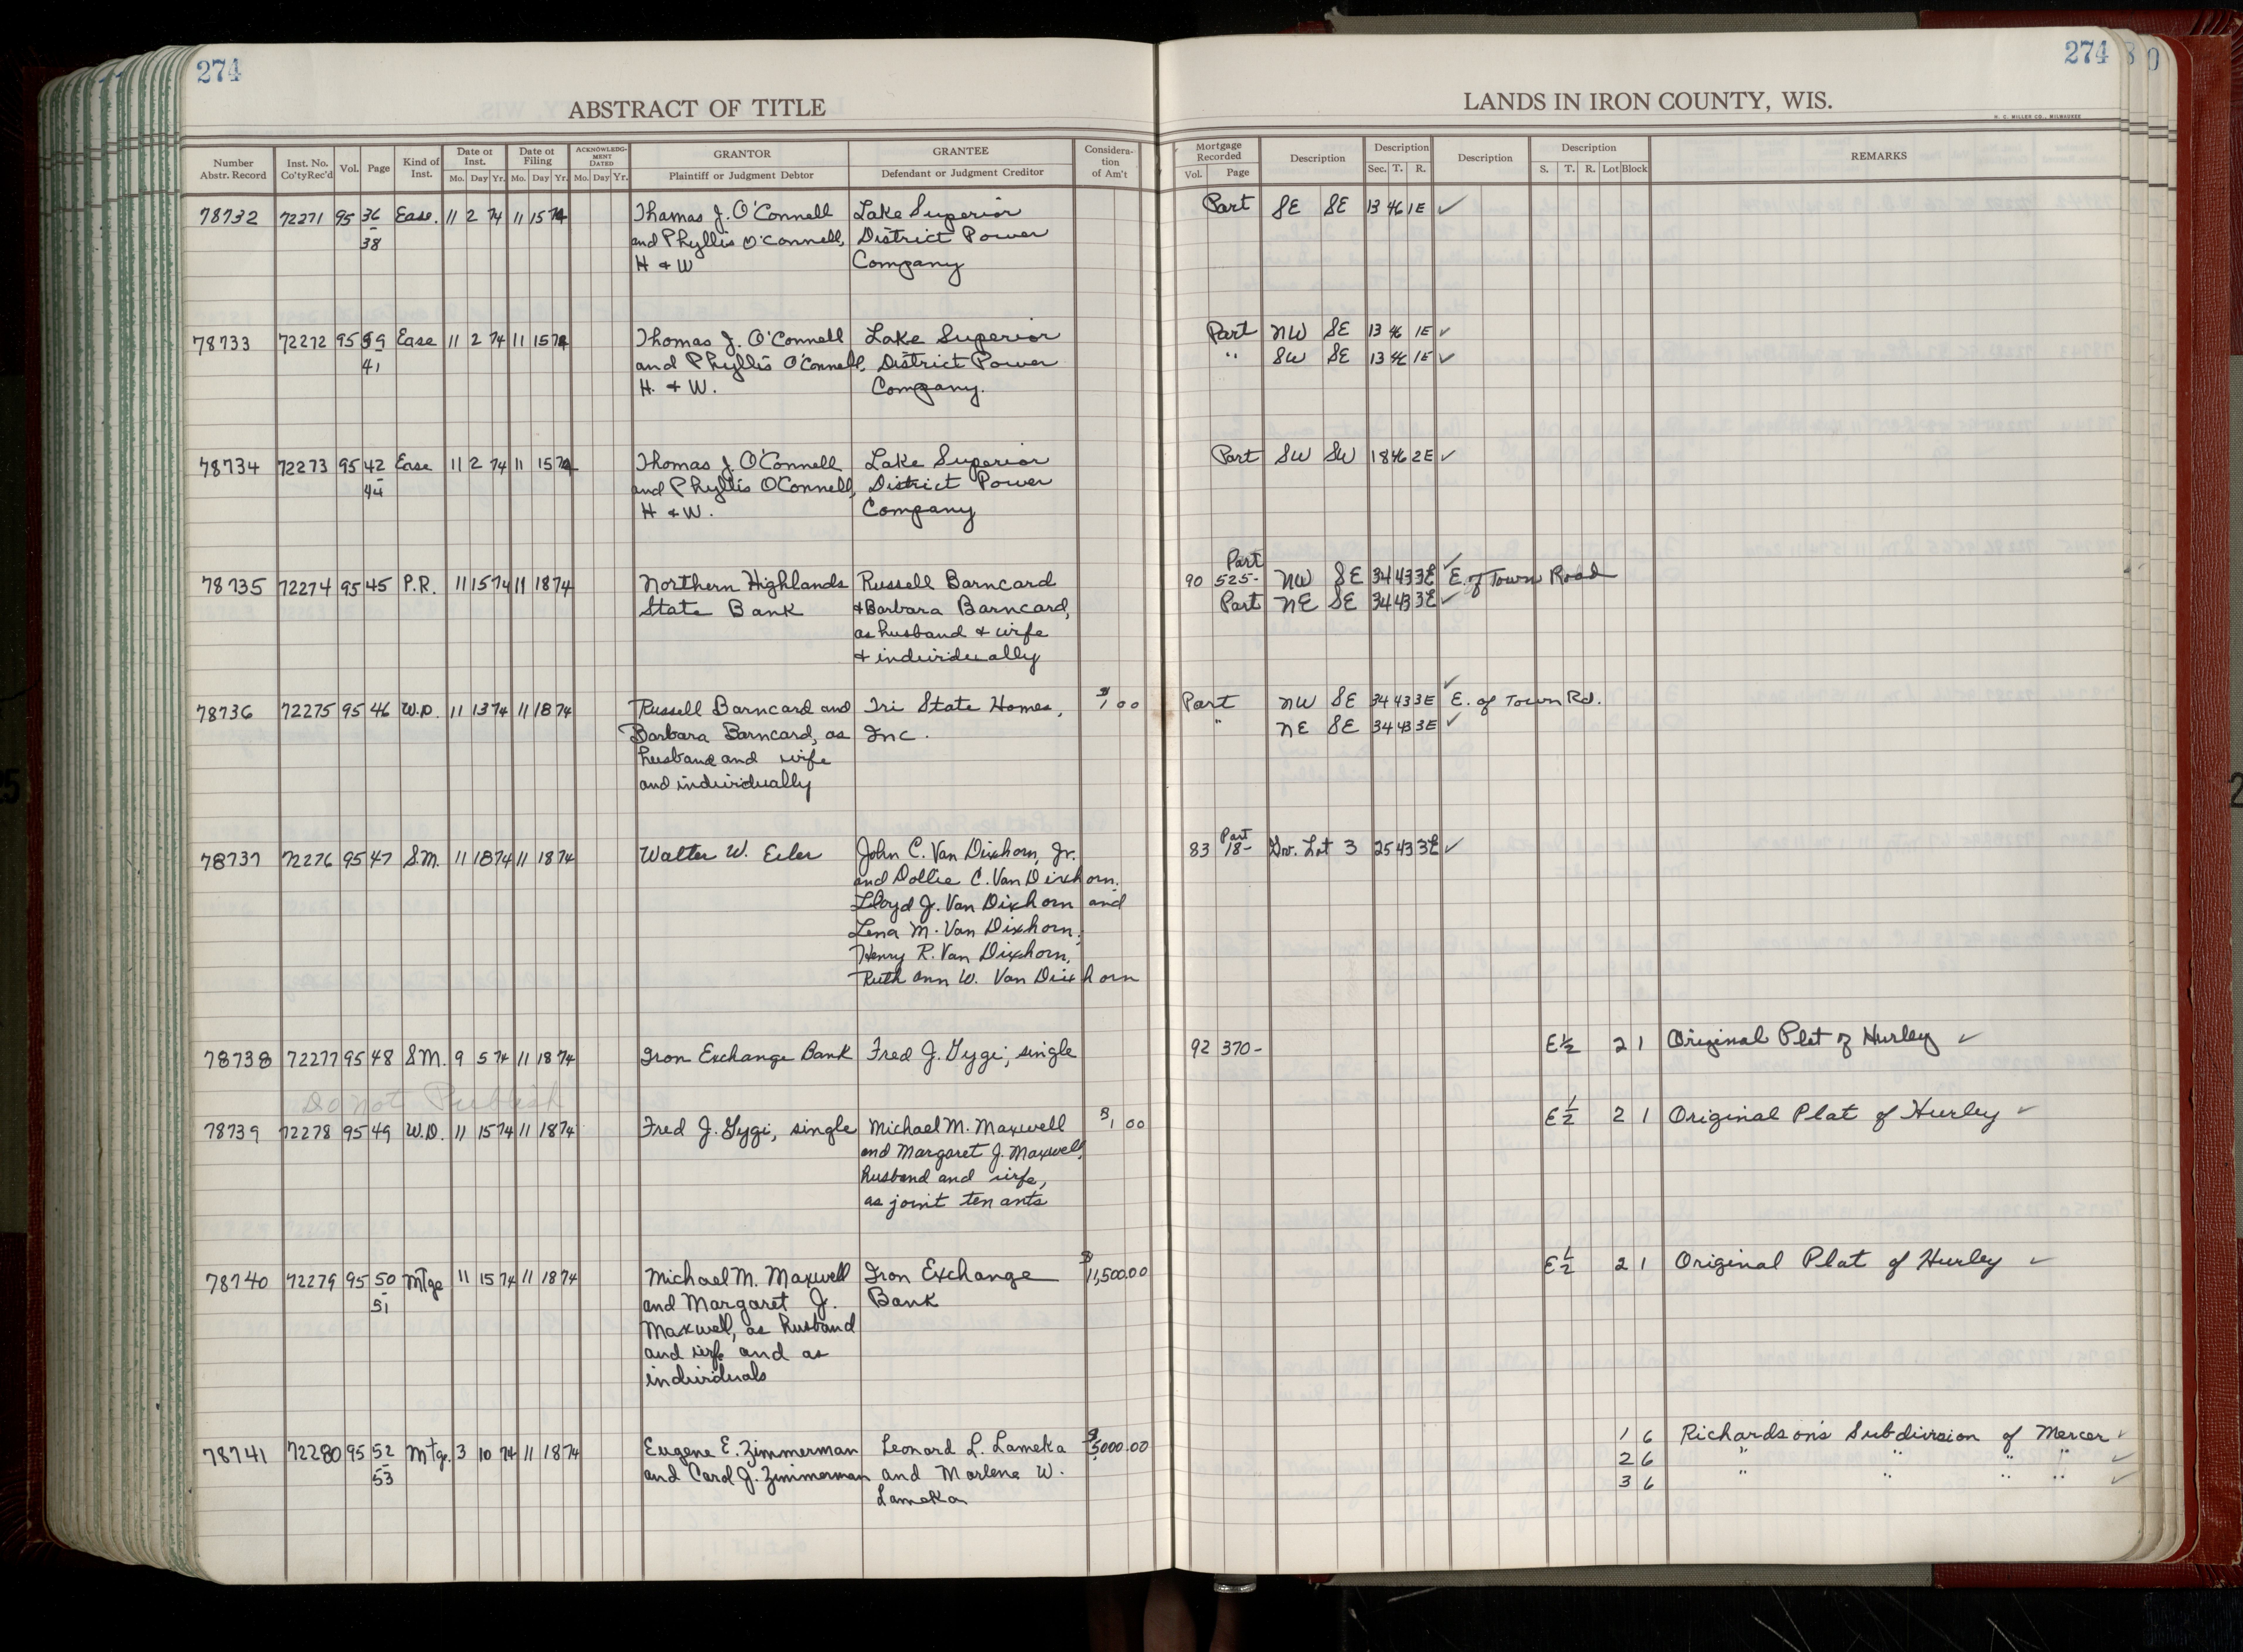 274
274
ABSTRACT OF TITLE
LANDS IN IRON COUNTY, WIS.
H. C. MILLER CO., MILWAUKEE
Number Abstr. Record Inst. No. Co'ty Rec'd Vol. Page Kind of Inst. Date of Inst. Mo. Day Yr. Date of Filing Mo. Day Yr. ACKNOWLEDGMENT DATED Mo. Day Yr. GRANTOR Plaintiff or Judgment Debtor GRANTEE Defendant or Judgment Creditor Consideration of Am't
Mortgage Recorded Vol. Page Description Description Sec. T. R. Description Description S. T. R. Lot Block REMARKS
78732 72271 95 36 Ease. 11 2 74 11 15 74 Thomas J. O'Connell Lake Superior Part SE SE 13 46 1E ✓
- 38 and Phyllis O'Connell, District Power
H & W Company
78733 72272 95 39 Ease 11 2 74 11 15 74 Thomas J. O'Connell Lake Superior Part NW SE 13 46 1E ✓
41 and Phyllis O'Connell, District Power " SW SE 13 46 1E ✓
H. & W. Company.
78734 72273 95 42 Ease 11 2 74 11 15 74 Thomas J. O'Connell Lake Superior Part SW SW 18 46 2E ✓
- 44 and Phyllis O'Connell, District Power
H & W. Company
Part ✓
78735 72274 95 45 P.R. 11 15 74 11 18 74 Northern Highlands Russell Barncard 90 525- NW SE 34 43 3E E. of Town Road
State Bank & Barbara Barncard, Part NE SE 34 43 3E ✓
as husband & wife
& individually
78736 72275 95 46 W.D. 11 13 74 11 18 74 Russell Barncard and Tri State Homes, $1 00 Part NW SE 34 43 3E ✓ E. of Town Rd.
Barbara Barncard, as Inc. " NE SE 34 43 3E ✓
husband and wife
and individually
Part
78737 72276 95 47 S.M. 11 18 74 11 18 74 Walter W. Eiler John C. Van Dixhorn, Jr. 83 18- Gov. Lot 3 25 43 3E ✓
and Dollie C. Van Dixhorn,
Lloyd J. Van Dixhorn and
Lena M. Van Dixhorn,
Henry R. Van Dixhorn,
Ruth Ann W. Van Dixhorn
78738 72277 95 48 S.M. 9 5 74 11 18 74 Iron Exchange Bank Fred J. Gygi, single 92 370- E½ 2 1 Original Plat of Hurley ✓
Do not Publish
78739 72278 95 49 W.D. 11 15 74 11 18 74 Fred J. Gygi, single Michael M. Maxwell $1 00 E½ 2 1 Original Plat of Hurley ✓
and Margaret J. Maxwell,
husband and wife,
as joint tenants
78740 72279 95 50 Mtge 11 15 74 11 18 74 Michael M. Maxwell Iron Exchange $11,500.00 E½ 2 1 Original Plat of Hurley ✓
- 51 and Margaret J. Bank
Maxwell, as husband
and wife and as
individuals
78741 72280 95 52 Mtge. 3 10 74 11 18 74 Eugene E. Zimmerman Leonard L. Lameka $5000.00 1 6 Richardson's Subdivision of Mercer ✓
- 53 and Carol J. Zimmerman and Marlene W. 2 6 " " " " ✓
Lameka 3 6 " " " " ✓